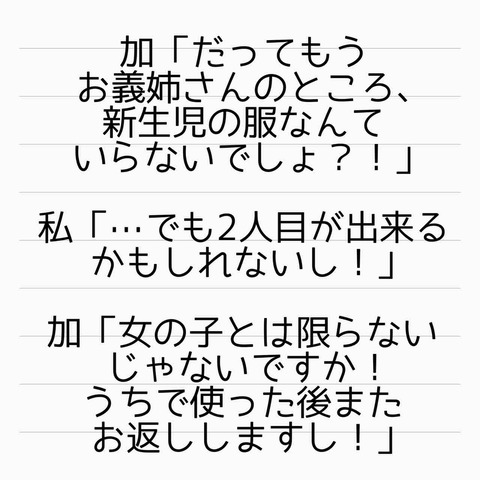 加「だってもう
お義姉さんのところ、
新生児の服なんて
いらないでしょ？！」
私「…でも2人目が出来る
かもしれないし！」
加「女の子とは限らない
じゃないですか！
うちで使った後また
お返ししますし！」